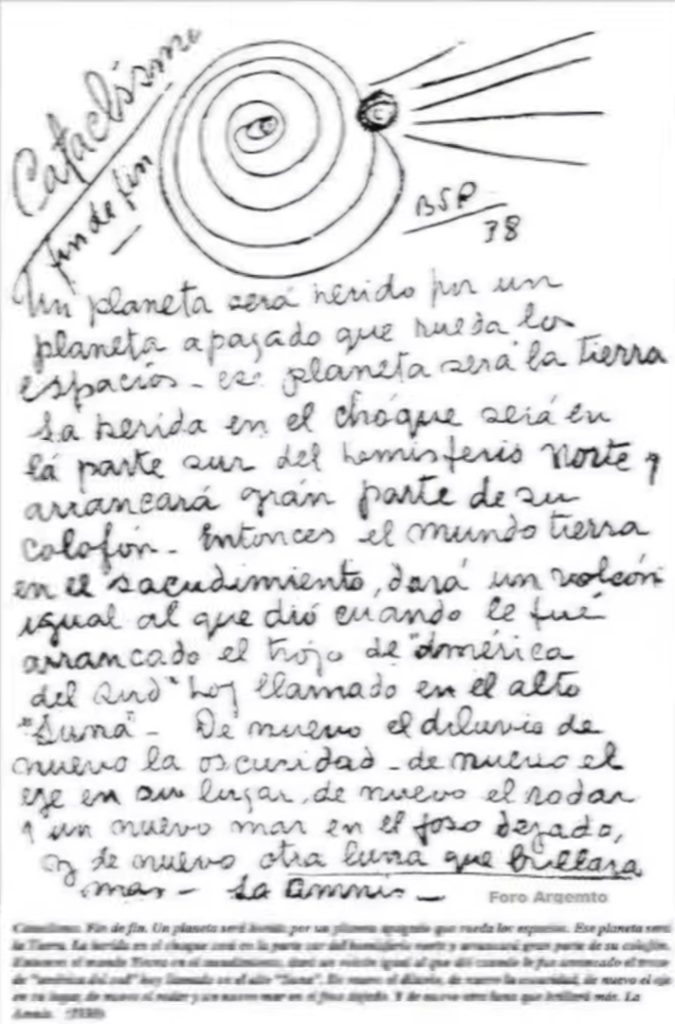 Cataclismo
fin de fin
BSP
38
Un planeta será herido por un
planeta apagado que rueda los
espacios - ese planeta será la tierra
La herida en el choque será en
lá parte sur del hemisferio norte y
arrancará gran parte de su
colofón - Entonces el mundo tierra
en el sacudimiento, dará un volcón
igual al que dió cuando le fué
arrancado el trozo de "América
del sud" hoy llamado en el alto
"Luna" - De nuevo el diluvio de
nuevo la oscuridad - de nuevo el
eje en su lugar, de nuevo el rodar
y un nuevo mar en el foso dejado,
y de nuevo otra luna que brillara
mas - La
Foro Argemto
Cataclismo. Fin de fin. Un planeta será herido por un planeta apagado que rueda los espacios. Ese planeta será
la Tierra. La herida en el choque será en la parte sur del hemisferio norte y arrancará gran parte de su colofón.
Entonces el mundo Tierra en el sacudimiento, dará un volcón igual al que dió cuando le fue arrancado el trozo
de "américa del sud" hoy llamado en el alto "luna". De nuevo el diluvio, de nuevo la oscuridad, de nuevo el eje
en su lugar, de nuevo el rodar y un nuevo mar en el foso dejado. Y de nuevo otra luna que brillará más. La
(1938)